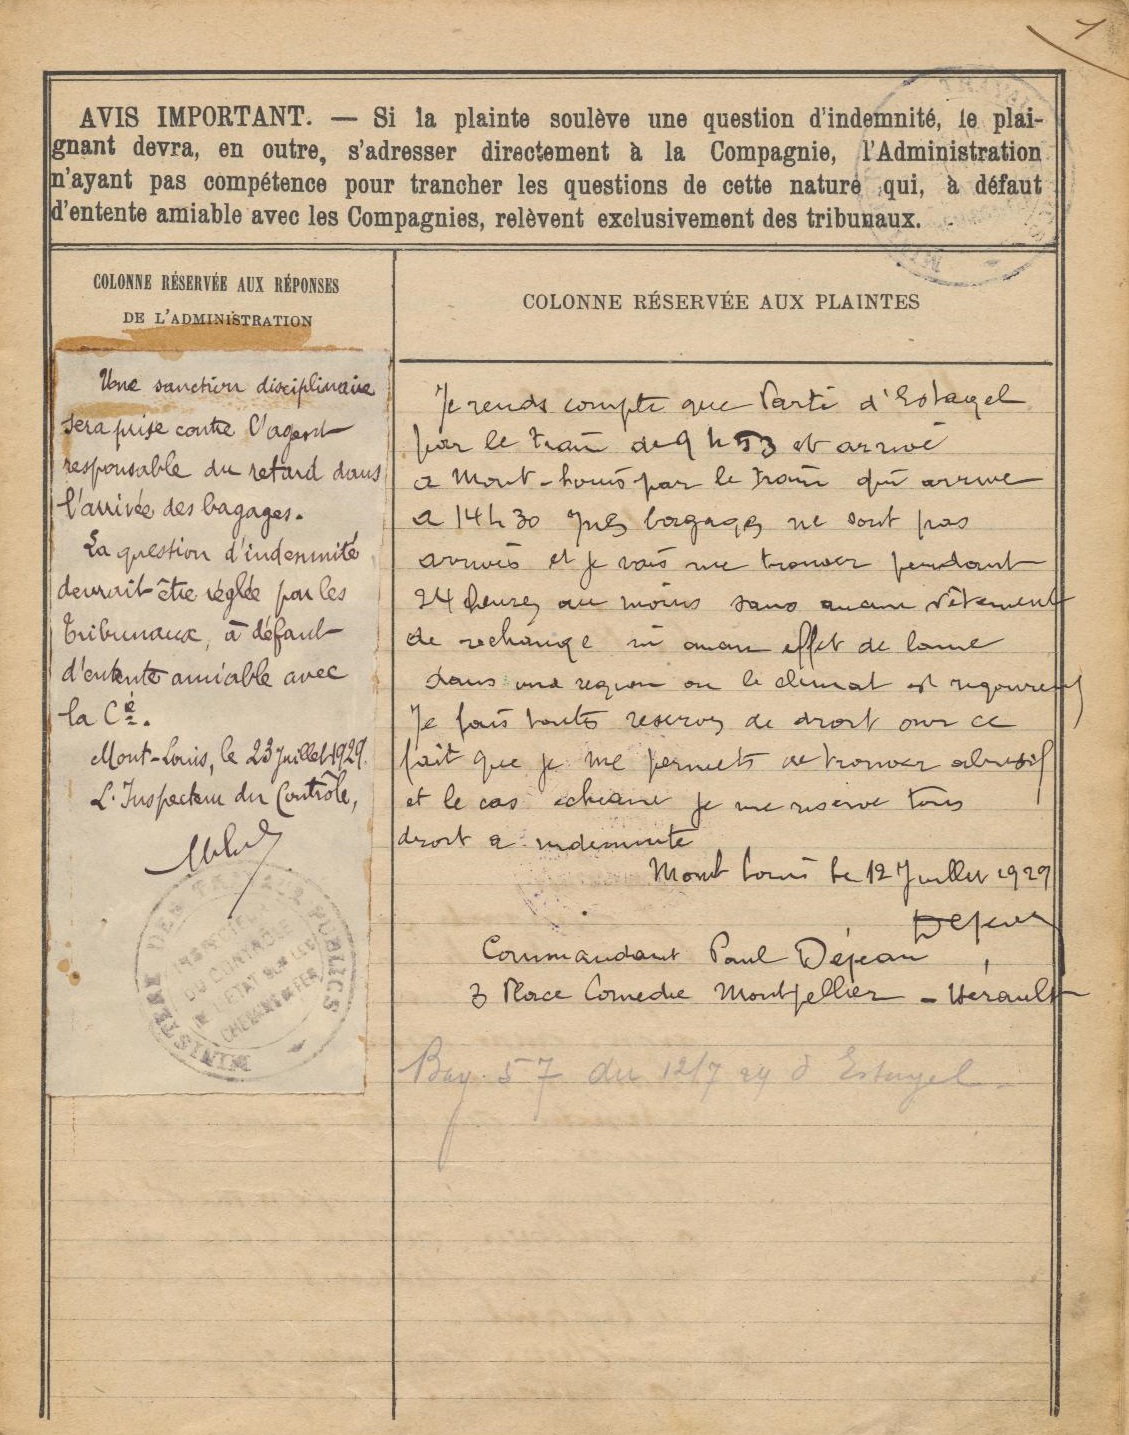 1
AVIS IMPORTANT. — Si la plainte soulève une question d'indemnité, le plai-
gnant devra, en outre, s'adresser directement à la Compagnie, l'Administration
n'ayant pas compétence pour trancher les questions de cette nature qui, à défaut
d'entente amiable avec les Compagnies, relèvent exclusivement des tribunaux.
COLONNE RÉSERVÉE AUX RÉPONSES
DE L'ADMINISTRATION
Une sanction disciplinaire
sera prise contre l'agent
responsable du retard dans
l'arrivée des bagages.
La question d'indemnité
devrait être réglée par les
Tribunaux, à défaut
d'entente amiable avec
la Cie.
Mont-Louis, le 23 Juillet 1929.
L'Inspecteur du Contrôle,
MINISTÈRE DES TRAVAUX PUBLICS
DU CONTROLE
DE L'ETAT SUR LES
CHEMINS DE FER
COLONNE RÉSERVÉE AUX PLAINTES
Je rends compte que Parti d'Estagel
par le train de 9 h 53 et arrivé
a Mont-Louis par le train qui arrive
a 14 h 30 mes bagages ne sont pas
arrivés et je vais me trouver pendant
24 heures au moins sans aucun vêtement
de rechange ni aucun effet de laine
dans une region ou le climat est rigoureux
Je fais toutes reserves de droit sur ce
fait que je me permets de trouver abusif
et le cas echeant je me reserve tous
droit a indemnite
Mont Louis le 12 Juillet 1929
Dejean
Commandant Paul Déjean
3 Place Comedie Montpellier - Herault
Bag. 57 du 12/7 29 d Estagel